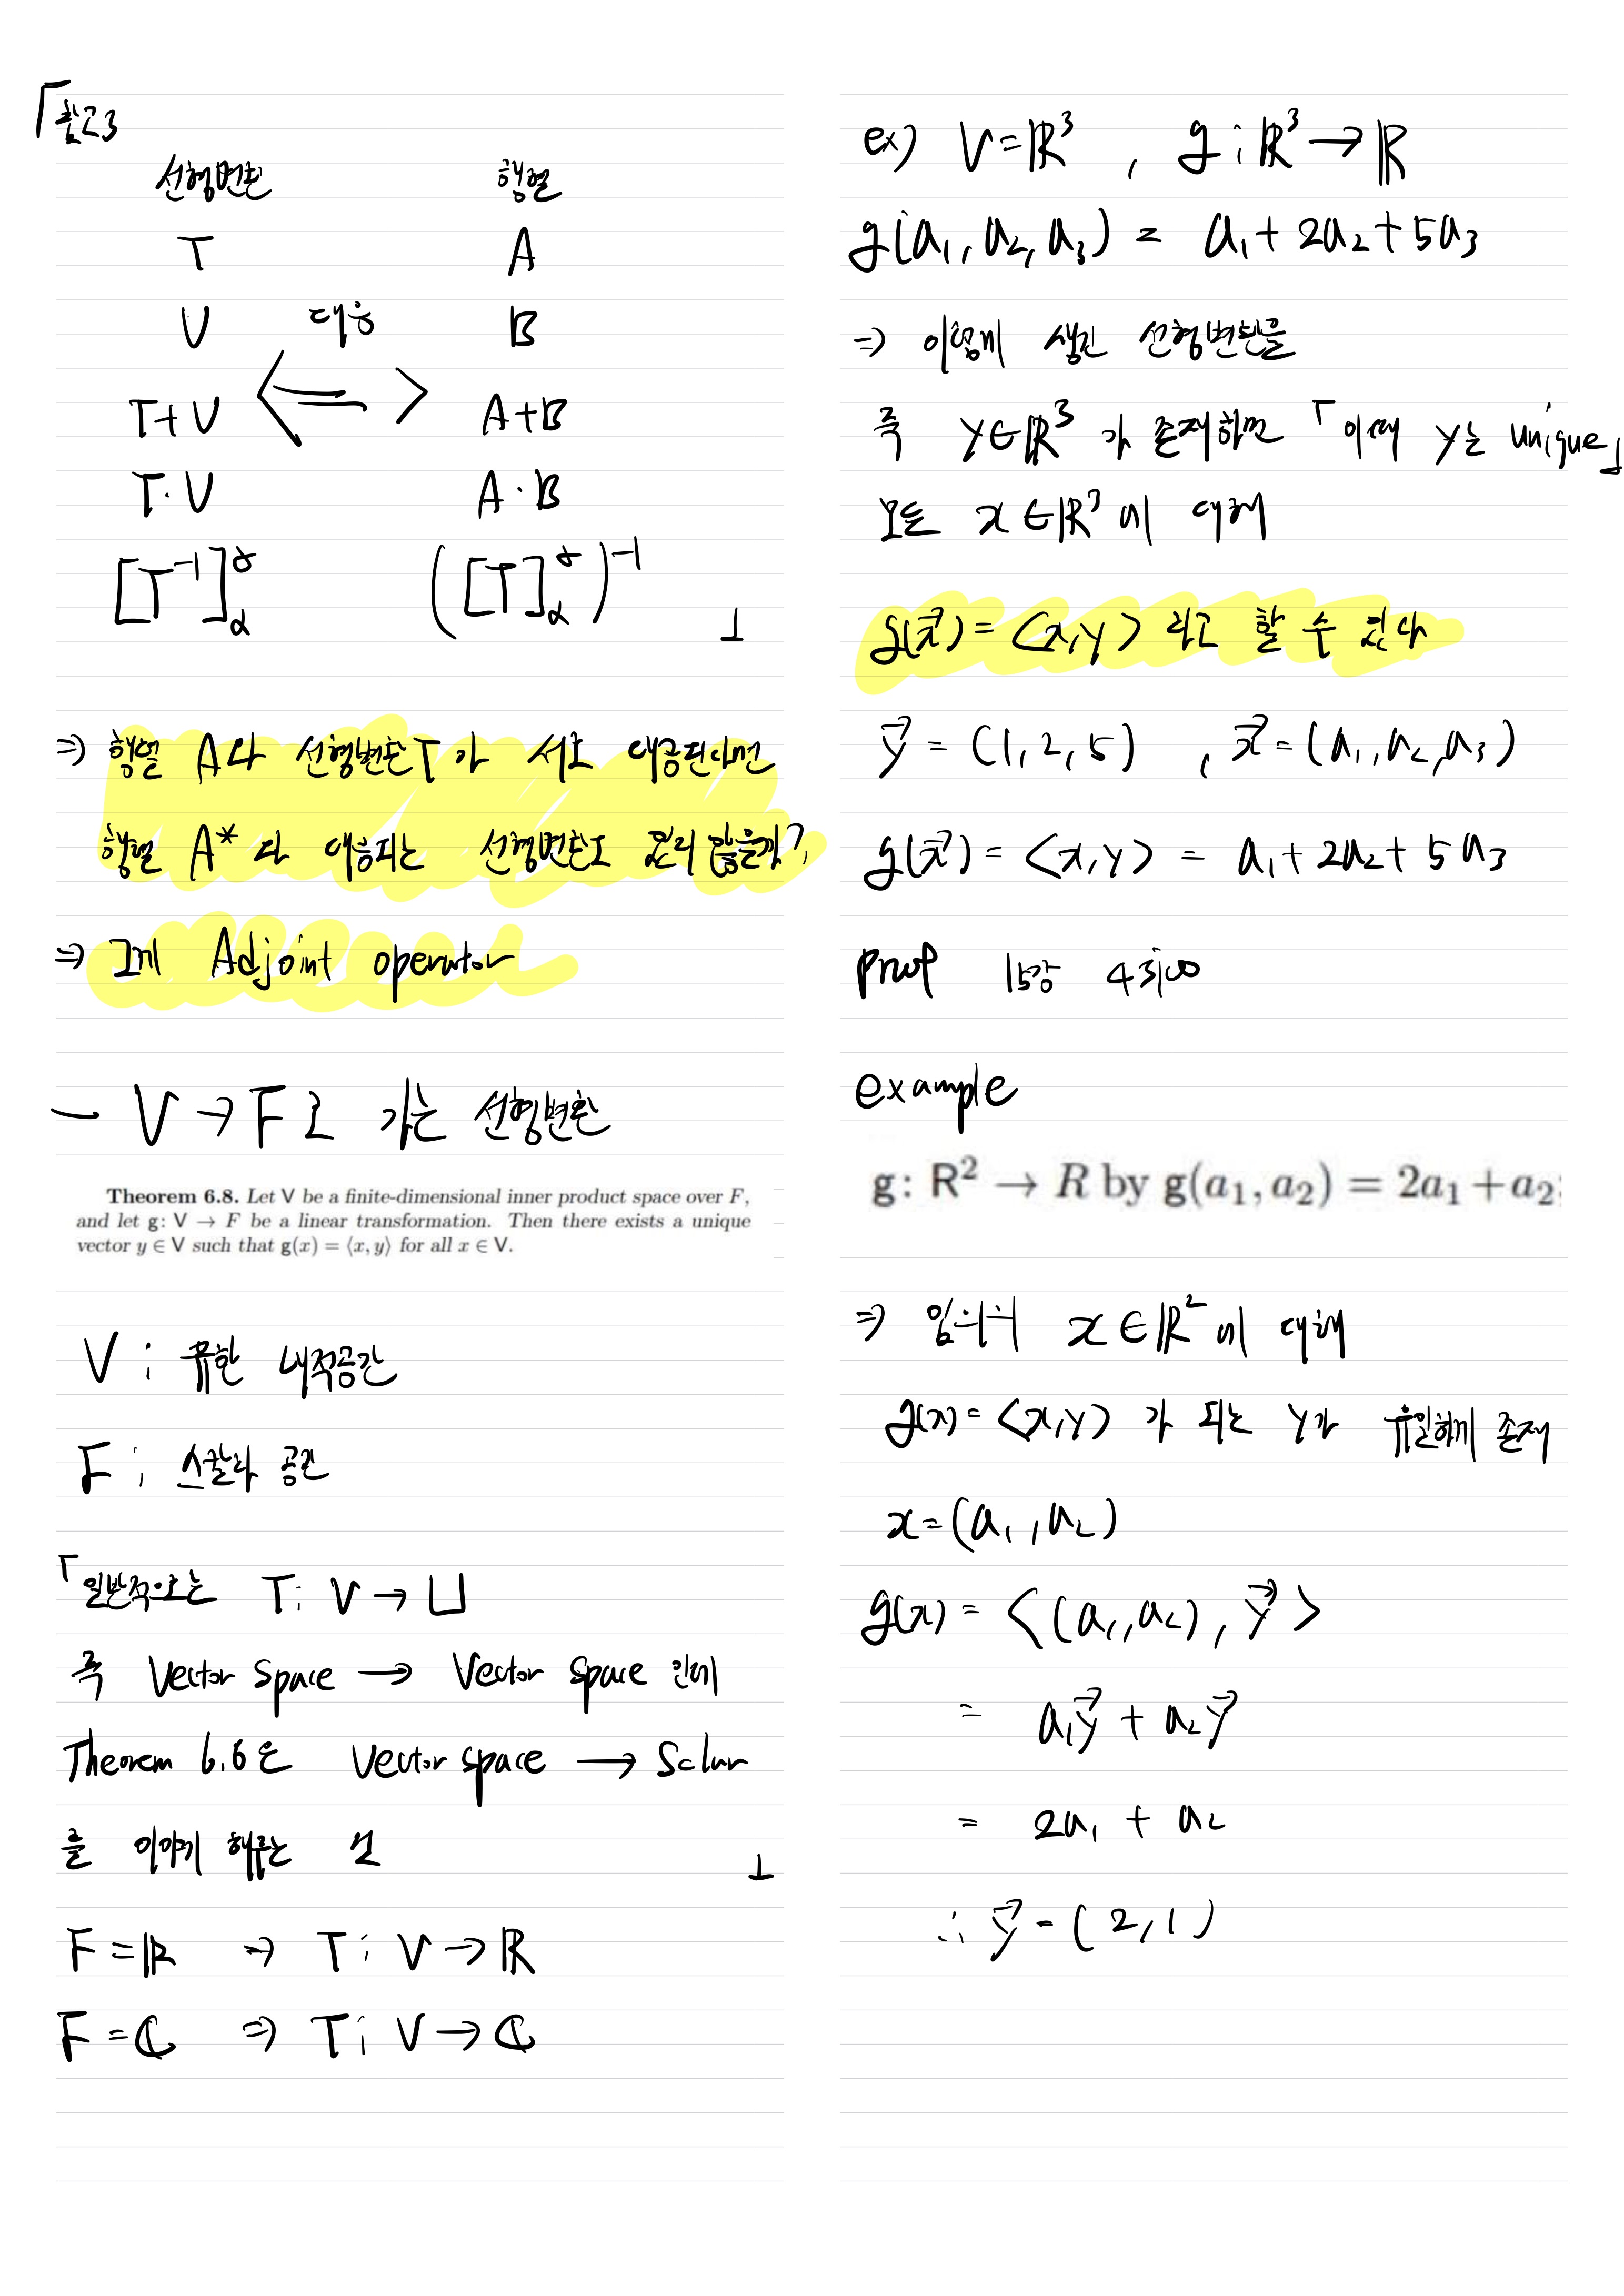 「참고3
선형변환 행렬
T A
U 대응 B
T+U <=> A+B
T·U A·B
[T⁻¹]ᵧα ([T]ᵧα)⁻¹ 」
⇒ 행렬 A와 선형변환 T가 서로 대응된다면
행렬 A* 와 대응되는 선형변환도 있지 않을까?
⇒ 그게 Adjoint operator
- V → F로 가는 선형변환
Theorem 6.8. Let V be a finite-dimensional inner product space over F,
and let g: V → F be a linear transformation. Then there exists a unique
vector y ∈ V such that g(x) = ⟨x, y⟩ for all x ∈ V.
V : 유한 내적공간
F : 스칼라 공간
「일반적으로는 T: V → U
즉 Vector space → Vector space 인데
Theorem 6.8은 Vector space → Sclar
를 이야기 해주는 것 」
F = ℝ ⇒ T : V → ℝ
F = ℂ ⇒ T : V → ℂ
ex) V = ℝ³ , g : ℝ³ → ℝ
g(a₁, a₂, a₃) = a₁ + 2a₂ + 5a₃
⇒ 이렇게 생긴 선형변환을
즉 y∈ℝ³ 가 존재하면 「이때 y는 unique」
모든 x ∈ ℝ³ 에 대해
g(x⃗) = <x, y> 라고 할 수 있다
y⃗ = (1, 2, 5) , x⃗ = (a₁, a₂, a₃)
g(x⃗) = <x, y> = a₁ + 2a₂ + 5a₃
proof 15강 4:00
example
g: R² → R by g(a₁, a₂) = 2a₁ + a₂;
⇒ 임의의 x ∈ ℝ² 에 대해
g(x) = <x, y> 가 되는 y가 유일하게 존재
x = (a₁, a₂)
g(x) = <(a₁, a₂), y⃗>
= a₁y⃗ + a₂y⃗
= 2a₁ + a₂
∴ y⃗ = (2, 1)